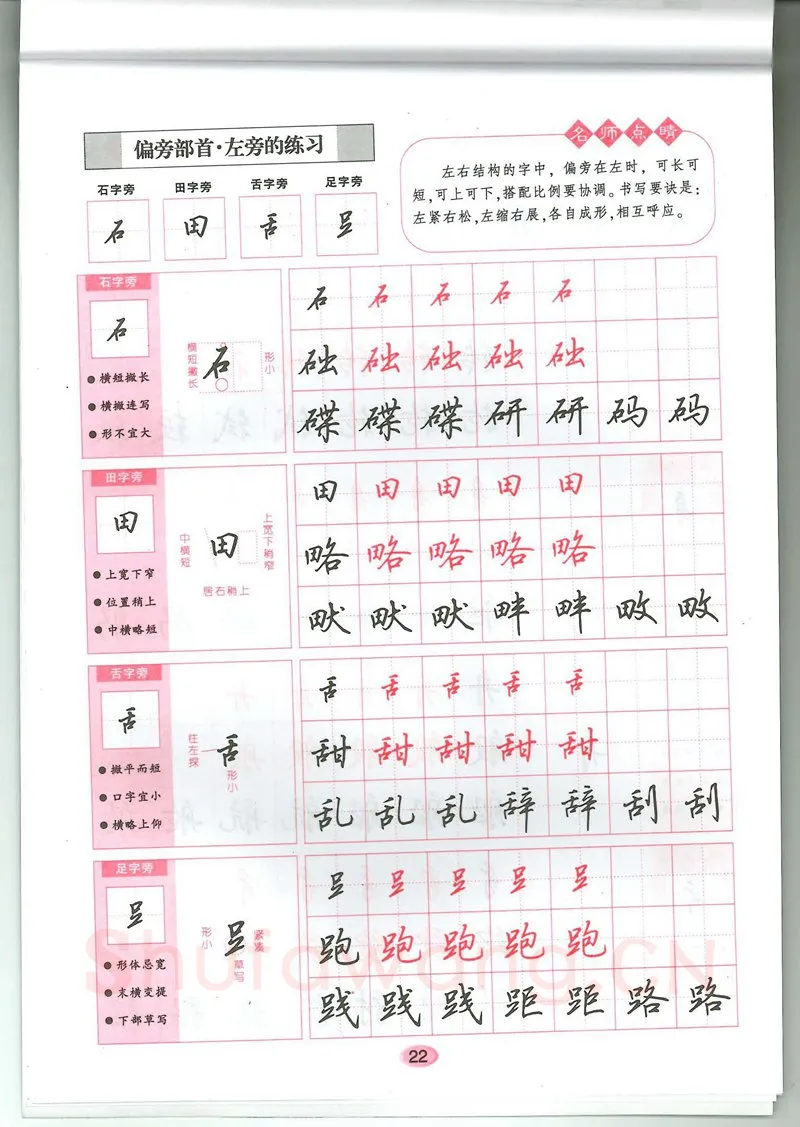 偏旁部首·左旁的练习
名师点睛
左右结构的字中，偏旁在左时，可长可
短，可上可下，搭配比例要协调。书写要诀是：
左紧右松，左缩右展，各自成形，相互呼应。
石字旁 田字旁 舌字旁 足字旁
石 田 舌 𧾷
石字旁
石
横短撇长
横撇连写
形不宜大
横短撇长
石
形小
石 石 石 石 石
础 础 础 础 础
碟 碟 碟 研 研 码 码
田字旁
田
上宽下窄
位置稍上
中横略短
中横短
田
上宽下稍窄
居右稍上
田 田 田 田 田
略 略 略 略 略
畎 畎 畎 畔 畔 畋 畋
舌字旁
舌
撇平而短
口字宜小
横略上仰
往左探
舌
形小
舌 舌 舌 舌 舌
甜 甜 甜 甜 甜
乱 乱 乱 辞 辞 刮 刮
足字旁
𧾷
形体忌宽
末横变提
下部草写
形小
𧾷
紧凑
草写
𧾷 𧾷 𧾷 𧾷 𧾷
跑 跑 跑 跑 跑
践 践 践 距 距 路 路
Shufawang.CN
22